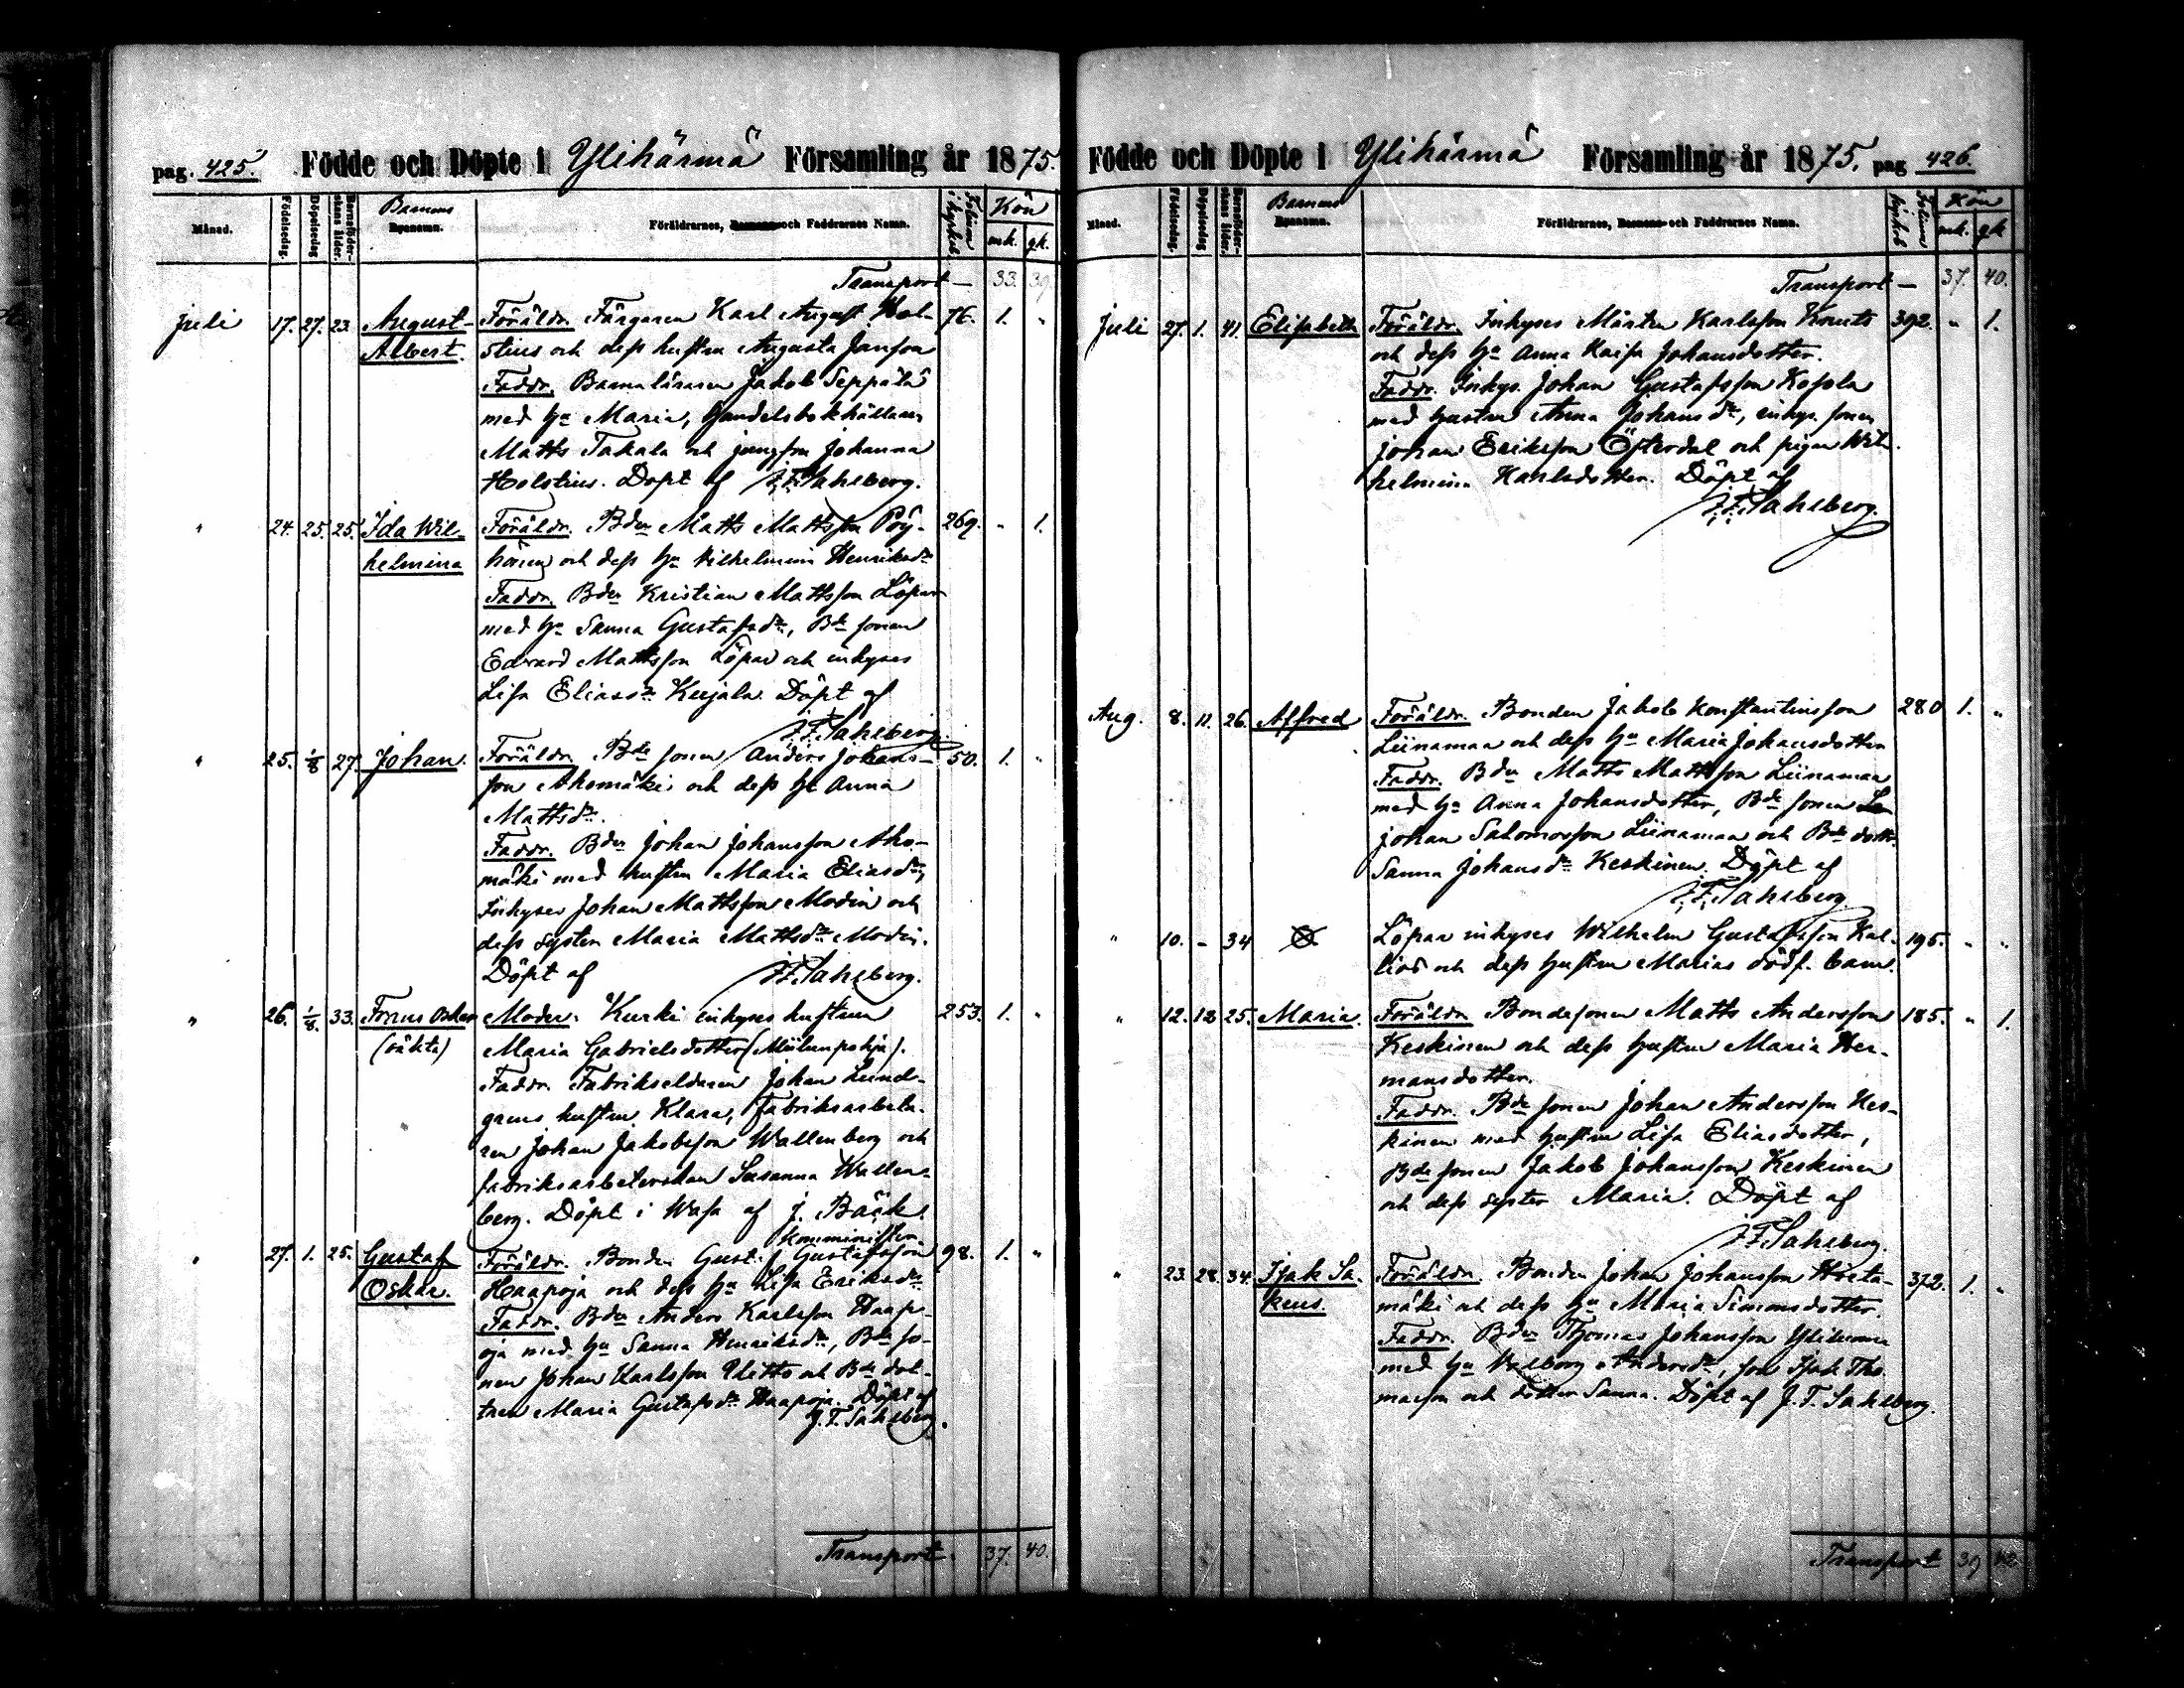 pag. 425. Födde och Döpte i Ylihärmä Församling år 1875.
Månad. Födelsedag. Döpelsedag Barnsföderskans ålder. Barnens Föräldrarnes, Barnens och Faddrarnes Namn. Kön
mk. qk.
Transport — 33. 39.
Juli 17. 27. 23. August Föräldr. Färgaren Karl August Hol- 76. 1. "
Albert. stius och dess hustru Augusta Jansson
Faddr. Barnaläraren Jakob Seppälä
med hu Maria, handelsbokhållaren
Matts Takala och jungfru Johanna
Holstius. Döpt af J. F. Sahlberg.
" 24. 25. 25. Ida Wil- Föräldr. Bden Matts Mattsson Pöy- 269. " 1.
helmina hönen och dess hu Wilhelmina Henriksdr
Faddr. Bden Kristian Mattsson Löpar
med hu Sanna Gustafsdr, Bde sonen
Edvard Mattsson Löpar och inhyses
Lisa Eliasdr Kujala. Döpt af
J. F. Sahlberg.
" 25. 1/8 27. Johan. Föräldr. Bde sonen Anders Johans- 50. 1. "
son Ahomäki och dess hu Anna
Mattsdr.
Faddr. Bden Johan Johansson Aho-
mäki med hustru Maria Eliasdr,
Inhyses Johan Mattsson Modin och
dess syster Maria Mattsdr Modin.
Döpt af J. F. Sahlberg.
" 26. 1/8. 33. Frans Oskar Moder. Kurki inhyses hustrun 253. 1. "
(oäkta) Maria Gabrielsdotter (Miilunpohja).
Faddr. Fabrikseldaren Johan Lund-
grens hustru Klara, fabriksarbeta-
ren Johan Jakobsson Wallenberg och
fabriksarbeterskan Susanna Wallen-
berg. Döpt i Wasa af J. Bäck.
Komminister
" 27. 1. 25. Gustaf Föräldr. Bonden Gust. Gustafsson 98. 1. "
Oskar. Haapoja och dess hu Lisa Eriksdr
Faddr. Bden Anders Karlsson Haap-
oja med hu Sanna Henriksdr, Bde so-
nen Johan Karlsson Ulitto och Bde dot-
tren Maria Gustafsdr Haapoja. Döpt af
J. F. Sahlberg.
Transport. 37. 40.
Födde och Döpte i Ylihärmä Församling år 1875. pag 426.
Månad. Födelsedag. Döpelsedag Barnsföderskans ålder. Barnens Föräldrarnes, Barnens och Faddrarnes Namn. Kön
mk. qk
Transport — 37. 40.
Juli 27. 1. 41. Elisabeth Föräldr. Inhyses Mårten Karlsson Knuts 392. " 1.
och dess hu Anna Kaisa Johansdotter.
Faddr. Inhys. Johan Gustafsson Kosola
med hustru Anna Johansdr, inhys. sonen
Johan Eriksson Österdal och pigan Wil-
helmina Karlsdotter. Döpt af
J. F. Sahlberg.
Aug. 8. 11. 26. Alfred Föräldr. Bonden Jakob Konstantinsson 280 1. "
Liinamaa och dess hu Maria Johansdotter
Faddr. Bden Matts Mattsson Liinamaa
med hu Anna Johansdotter, Bde sonen
Johan Salomonsson Liinamaa och Bde dottr.
Sanna Johansdr Keskinen. Döpt af
J. F. Sahlberg
" 10. - 34 Löpar inhyses Wilhelm Gustafsson Kal- 195. " "
lios och dess hustru Marias dödf. barn.
" 12. 12 25. Maria. Föräldr. Bondesonen Matts Andersson 185. " 1.
Keskinen och dess hustru Maria Her-
mansdotter.
Faddr. Bde sonen Johan Andersson Kes-
kinen med hustru Lisa Eliasdotter,
Bde sonen Jakob Johansson Keskinen
och dess syster Maria. Döpt af
J. F. Sahlberg.
" 23. 28. 34. Isak Sa- Föräldr. Bonden Johan Johansson 372. 1. "
keus. mäki och dess hu Maria Simonsdotter.
Faddr. Bden Thomas Johansson
med hu Walborg Andersdr, son Isak Tho-
masson och dotter Sanna. Döpt af J. F. Sahlberg.
Transport 39 42